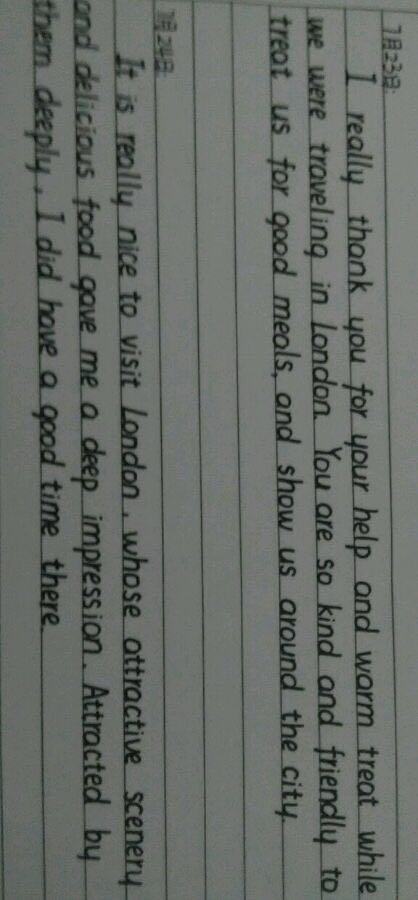 7月23日:
I really thank you for your help and warm treat while
we were traveling in London. You are so kind and friendly to
treat us for good meals, and show us around the city.
7月24日:
It is really nice to visit London, whose attractive scenery
and delicious food gave me a deep impression. Attracted by
them deeply, I did have a good time there.